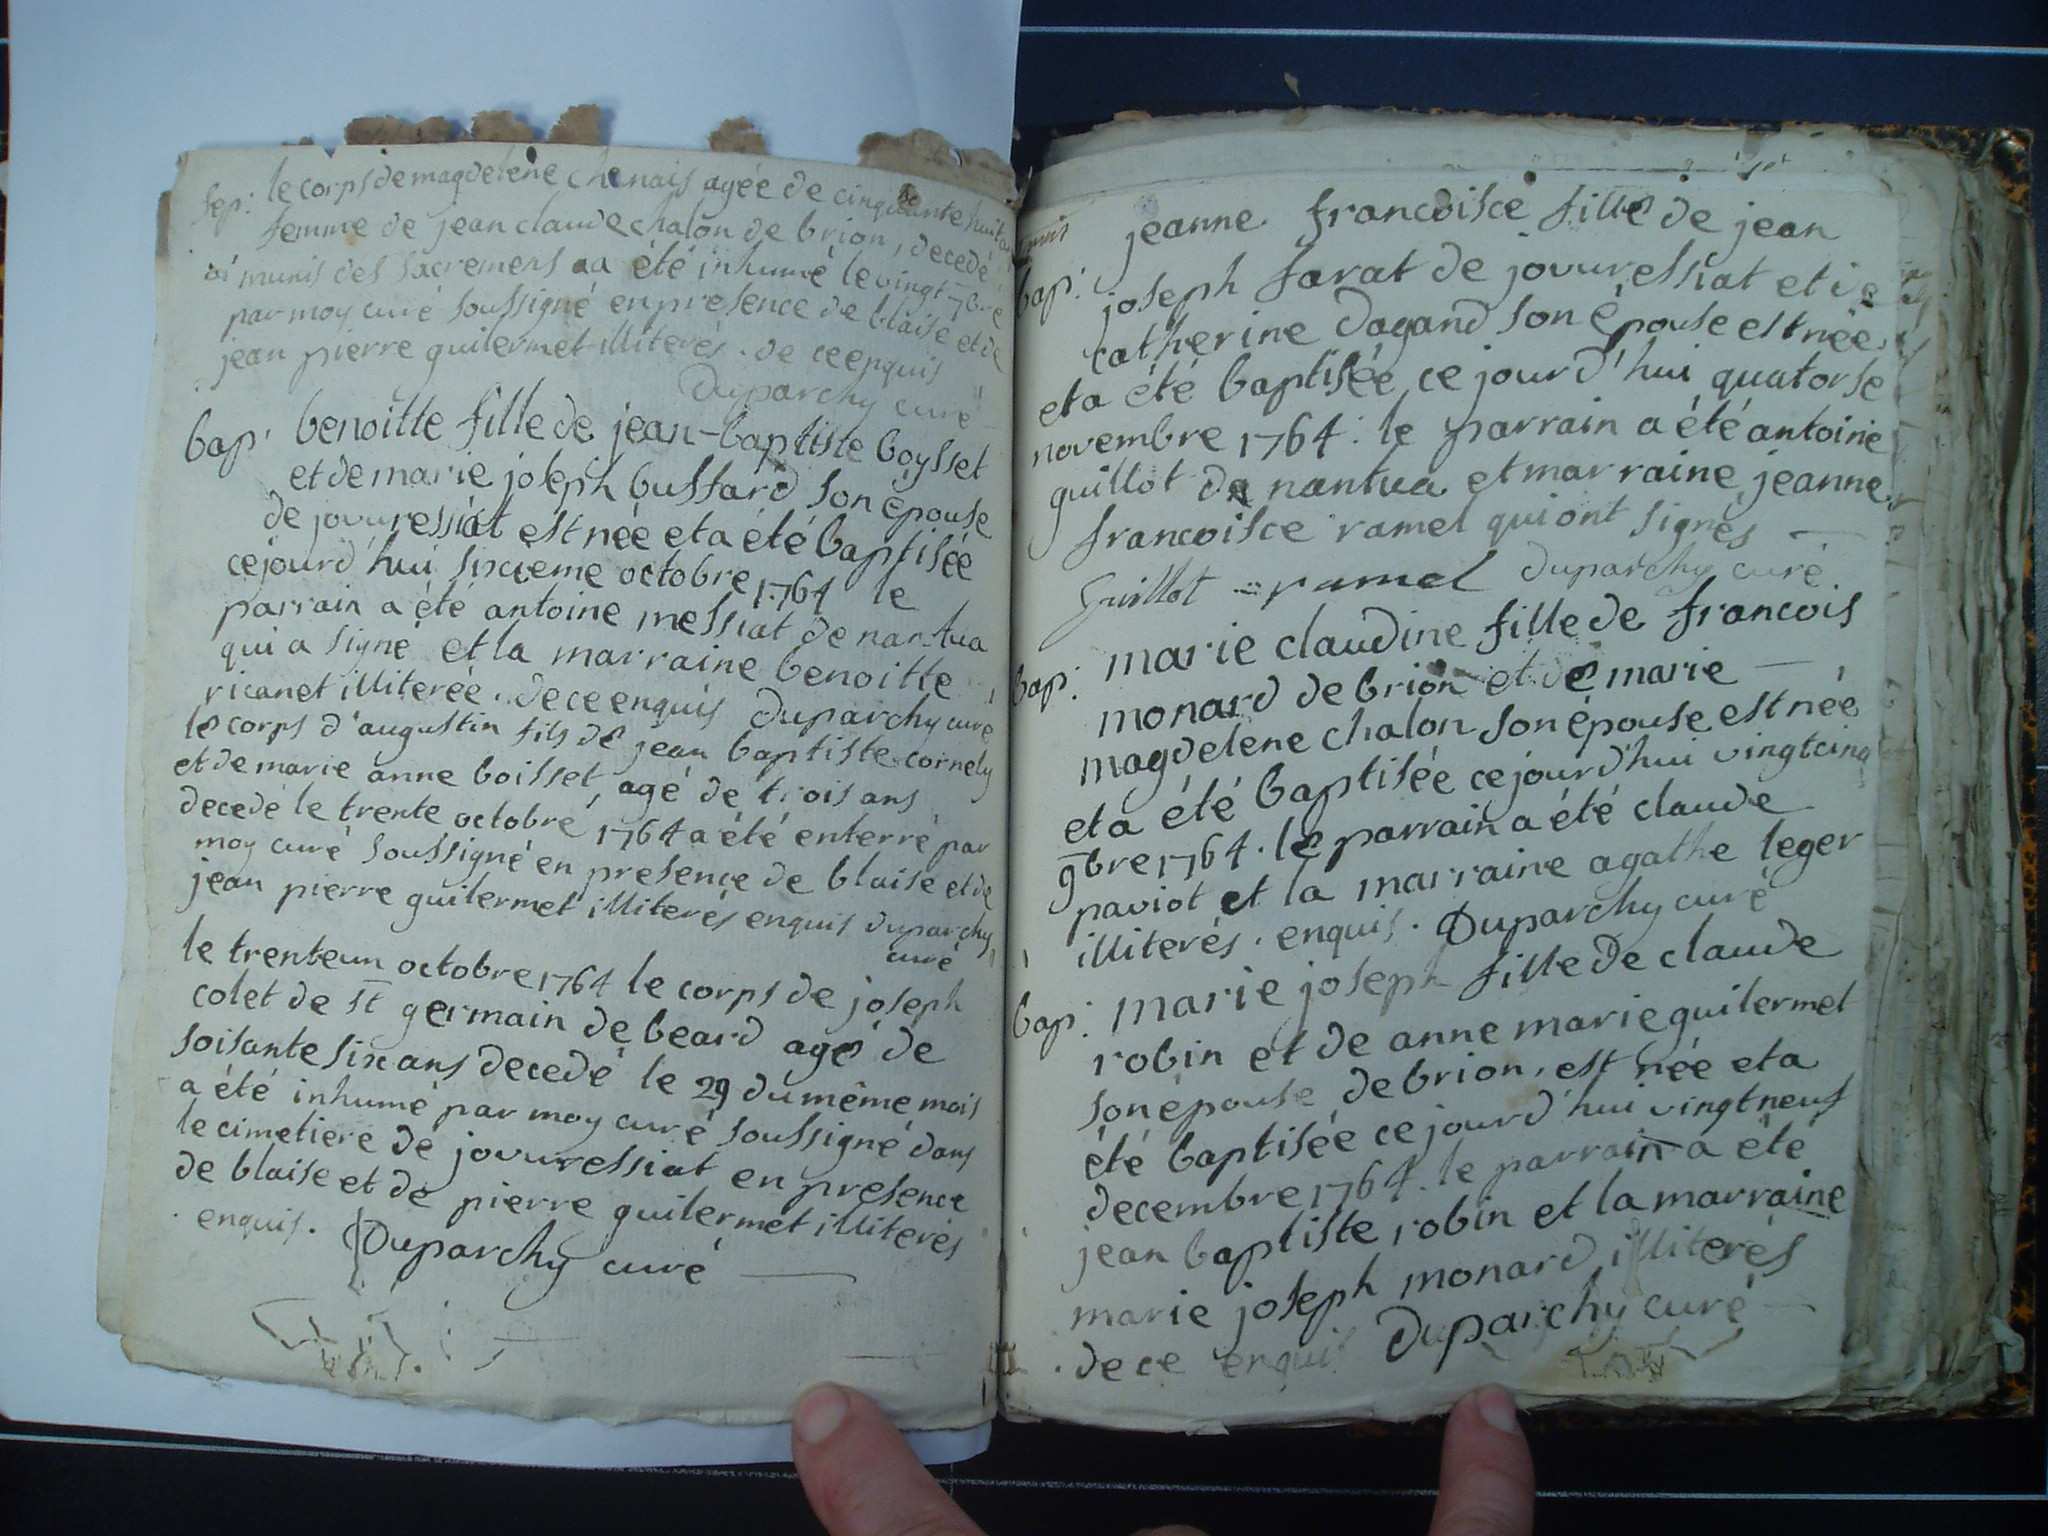 sep: le corps de magdelene chenais agée de cinquante huit ans
femme de jean claude chalon de brion, decedé
munis des sacremens a été inhumé le vingt 7bre
par moy curé soussigné en presence de blaise et de
jean pierre guilermet illiterés. de ce enquis
Duparchy curé
bap: benoitte fille de jean-baptiste boysset
et de marie joseph bussard son épouse
de jouuressiat est née et a été baptisée
cejourd'hui sixieme octobre 1764 le
parrain a été antoine messiat de nantua
qui a signé et la marraine benoitte
ricanet illiterée. de ce enquis Duparchy curé
le corps d'augustin fils de jean baptiste cornely
et de marie anne boisset, agé de trois ans
decedé le trente octobre 1764 a été enterré par
moy curé soussigné en presence de blaise et de
jean pierre guilermet illiterés enquis duparchy
curé
le trenteun octobre 1764 le corps de joseph
colet de st germain de beard agé de
soisante six ans decedé le 29 du même mois
a été inhumé par moy curé soussigné dans
le cimetiere de jouuressiat en presence
de blaise et de pierre guilermet illiterés
enquis. Duparchy curé
jeanne francoisce fille de jean
bap: joseph sarat de jouuressiat et de
catherine dagand son épouse est née
et a été baptisée ce jourd'hui quatorse
novembre 1764: le parrain a été antoine
guillot de nantua et marraine jeanne
francoisce ramel qui ont signés
Guillot ramel duparchy curé
bap: marie claudine fille de francois
monard de brion et de marie
magdelene chalon son épouse est née
et a été baptisée cejourd'hui vingtcinq
9bre 1764. le parrain a été claude
paviot et la marraine agathe leger
illiterés. enquis. Duparchy curé
bap: marie joseph fille de claude
robin et de anne marie guilermet
son épouse de brion, est née et a
été baptisée cejourd'hui vingtneuf
decembre 1764. le parrain a été
jean baptiste robin et la marraine
marie joseph monard illiterés
de ce enquis Duparchy curé